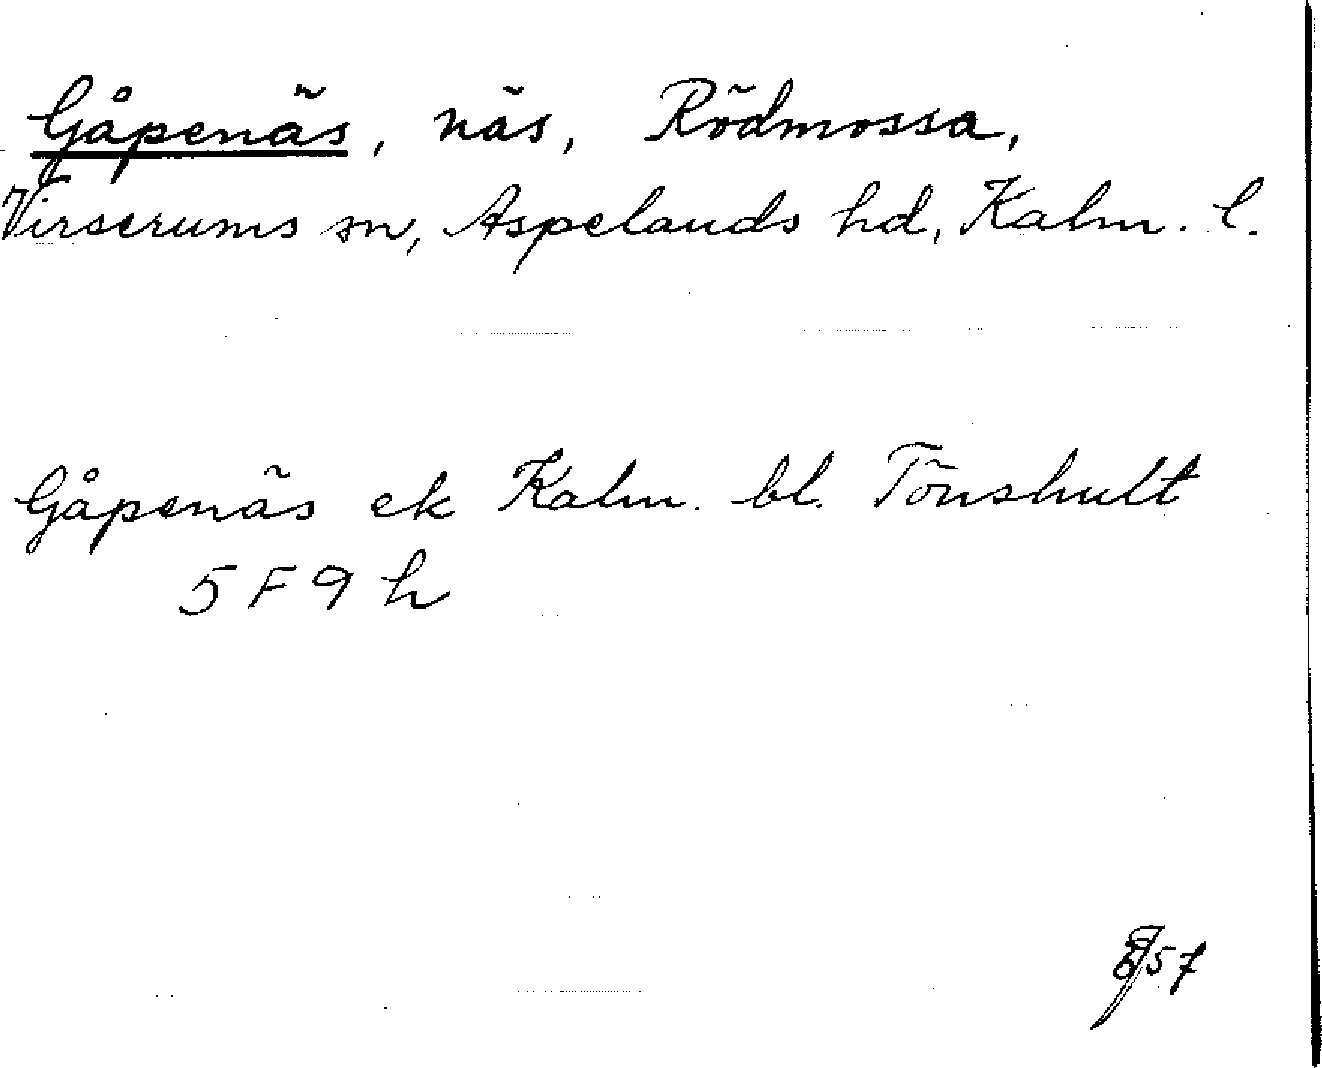 Gåpenäs, näs, Rödmossa,
Virserums sn, Aspelands hd, Kalm. l.
Gåpenäs ek Kalm. bl. Tönshult
5 F 9 h
57